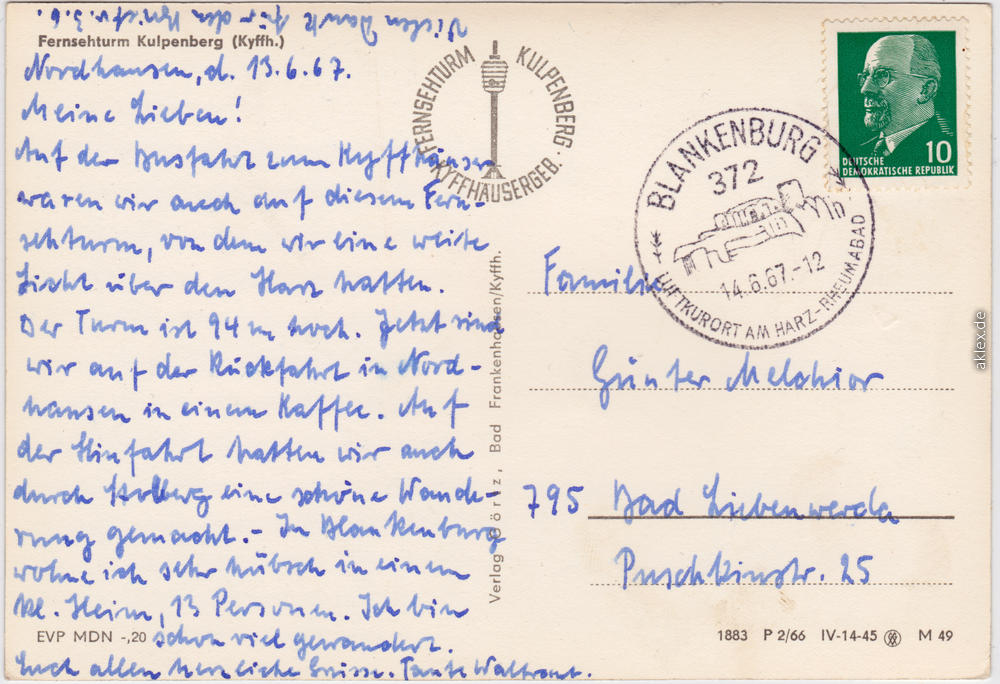 Vielen Dank für den Brief v. 3.6.
Fernsehturm Kulpenberg (Kyffh.)
Nordhausen, d. 13.6.67.
Meine Lieben!
Auf der Busfahrt zum Kyffhäuser
waren wir auch auf diesem Fern-
sehturm, von dem wir eine weite
Sicht über den Harz hatten.
Der Turm ist 94 m hoch. Jetzt sind
wir auf der Rückfahrt in Nord-
hausen in einem Kaffee. Auf
der Hinfahrt hatten wir auch
durch Stolberg eine schöne Wande-
rung gemacht. - In Blankenburg
wohne ich sehr hübsch in einem
kl. Heim, 13 Personen. Ich bin
schon viel gewandert.
Euch allen herzliche Grüsse. Tante Waltraut.
EVP MDN -,20
FERNSEHTURM KULPENBERG
KYFFHÄUSERGEB.
Verlag Görtz, Bad Frankenhausen/Kyffh.
BLANKENBURG
372
14.6.67.-12
LUFTKURORT AM HARZ-RHEUMABAD
DEUTSCHE
DEMOKRATISCHE REPUBLIK
10
Familie
Günter Melchior
795 Bad Liebenwerda
Puschkinstr. 25
1883 P 2/66 IV-14-45 M 49
aklex.de